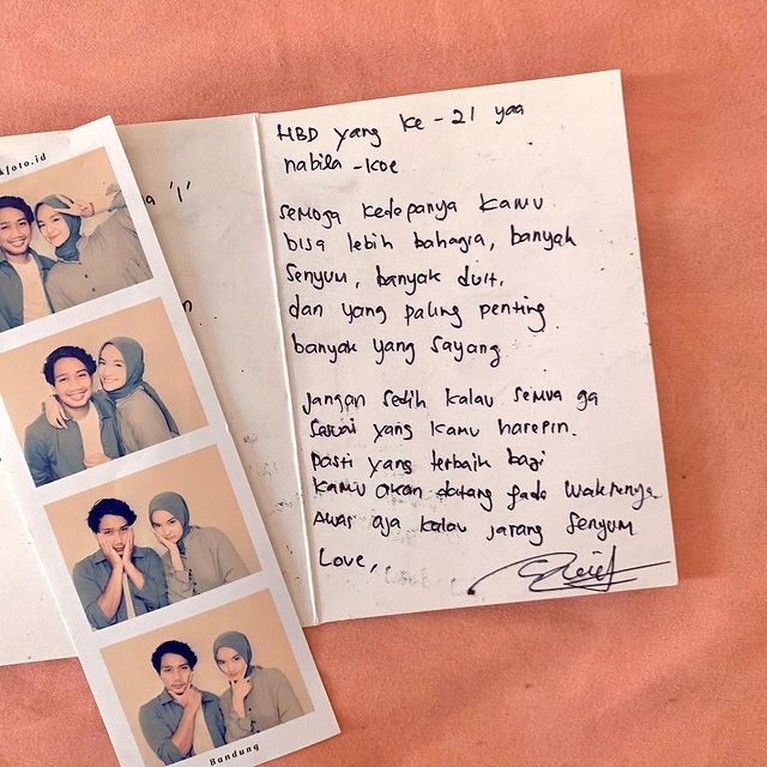 kfoto.id
a '1'
n
HBD yang ke-21 yaa
nabila-koe
semoga kedepanya kamu
bisa lebih bahagia, banyak
senyum, banyak duit.
dan yang paling penting
banyak yang sayang
Jangan sedih kalau semua ga
sesuai yang kamu harepin.
pasti yang terbaik bagi
kamu akan datang pada waktunya
Awas aja kalau jarang senyum
Love,.
Bandung